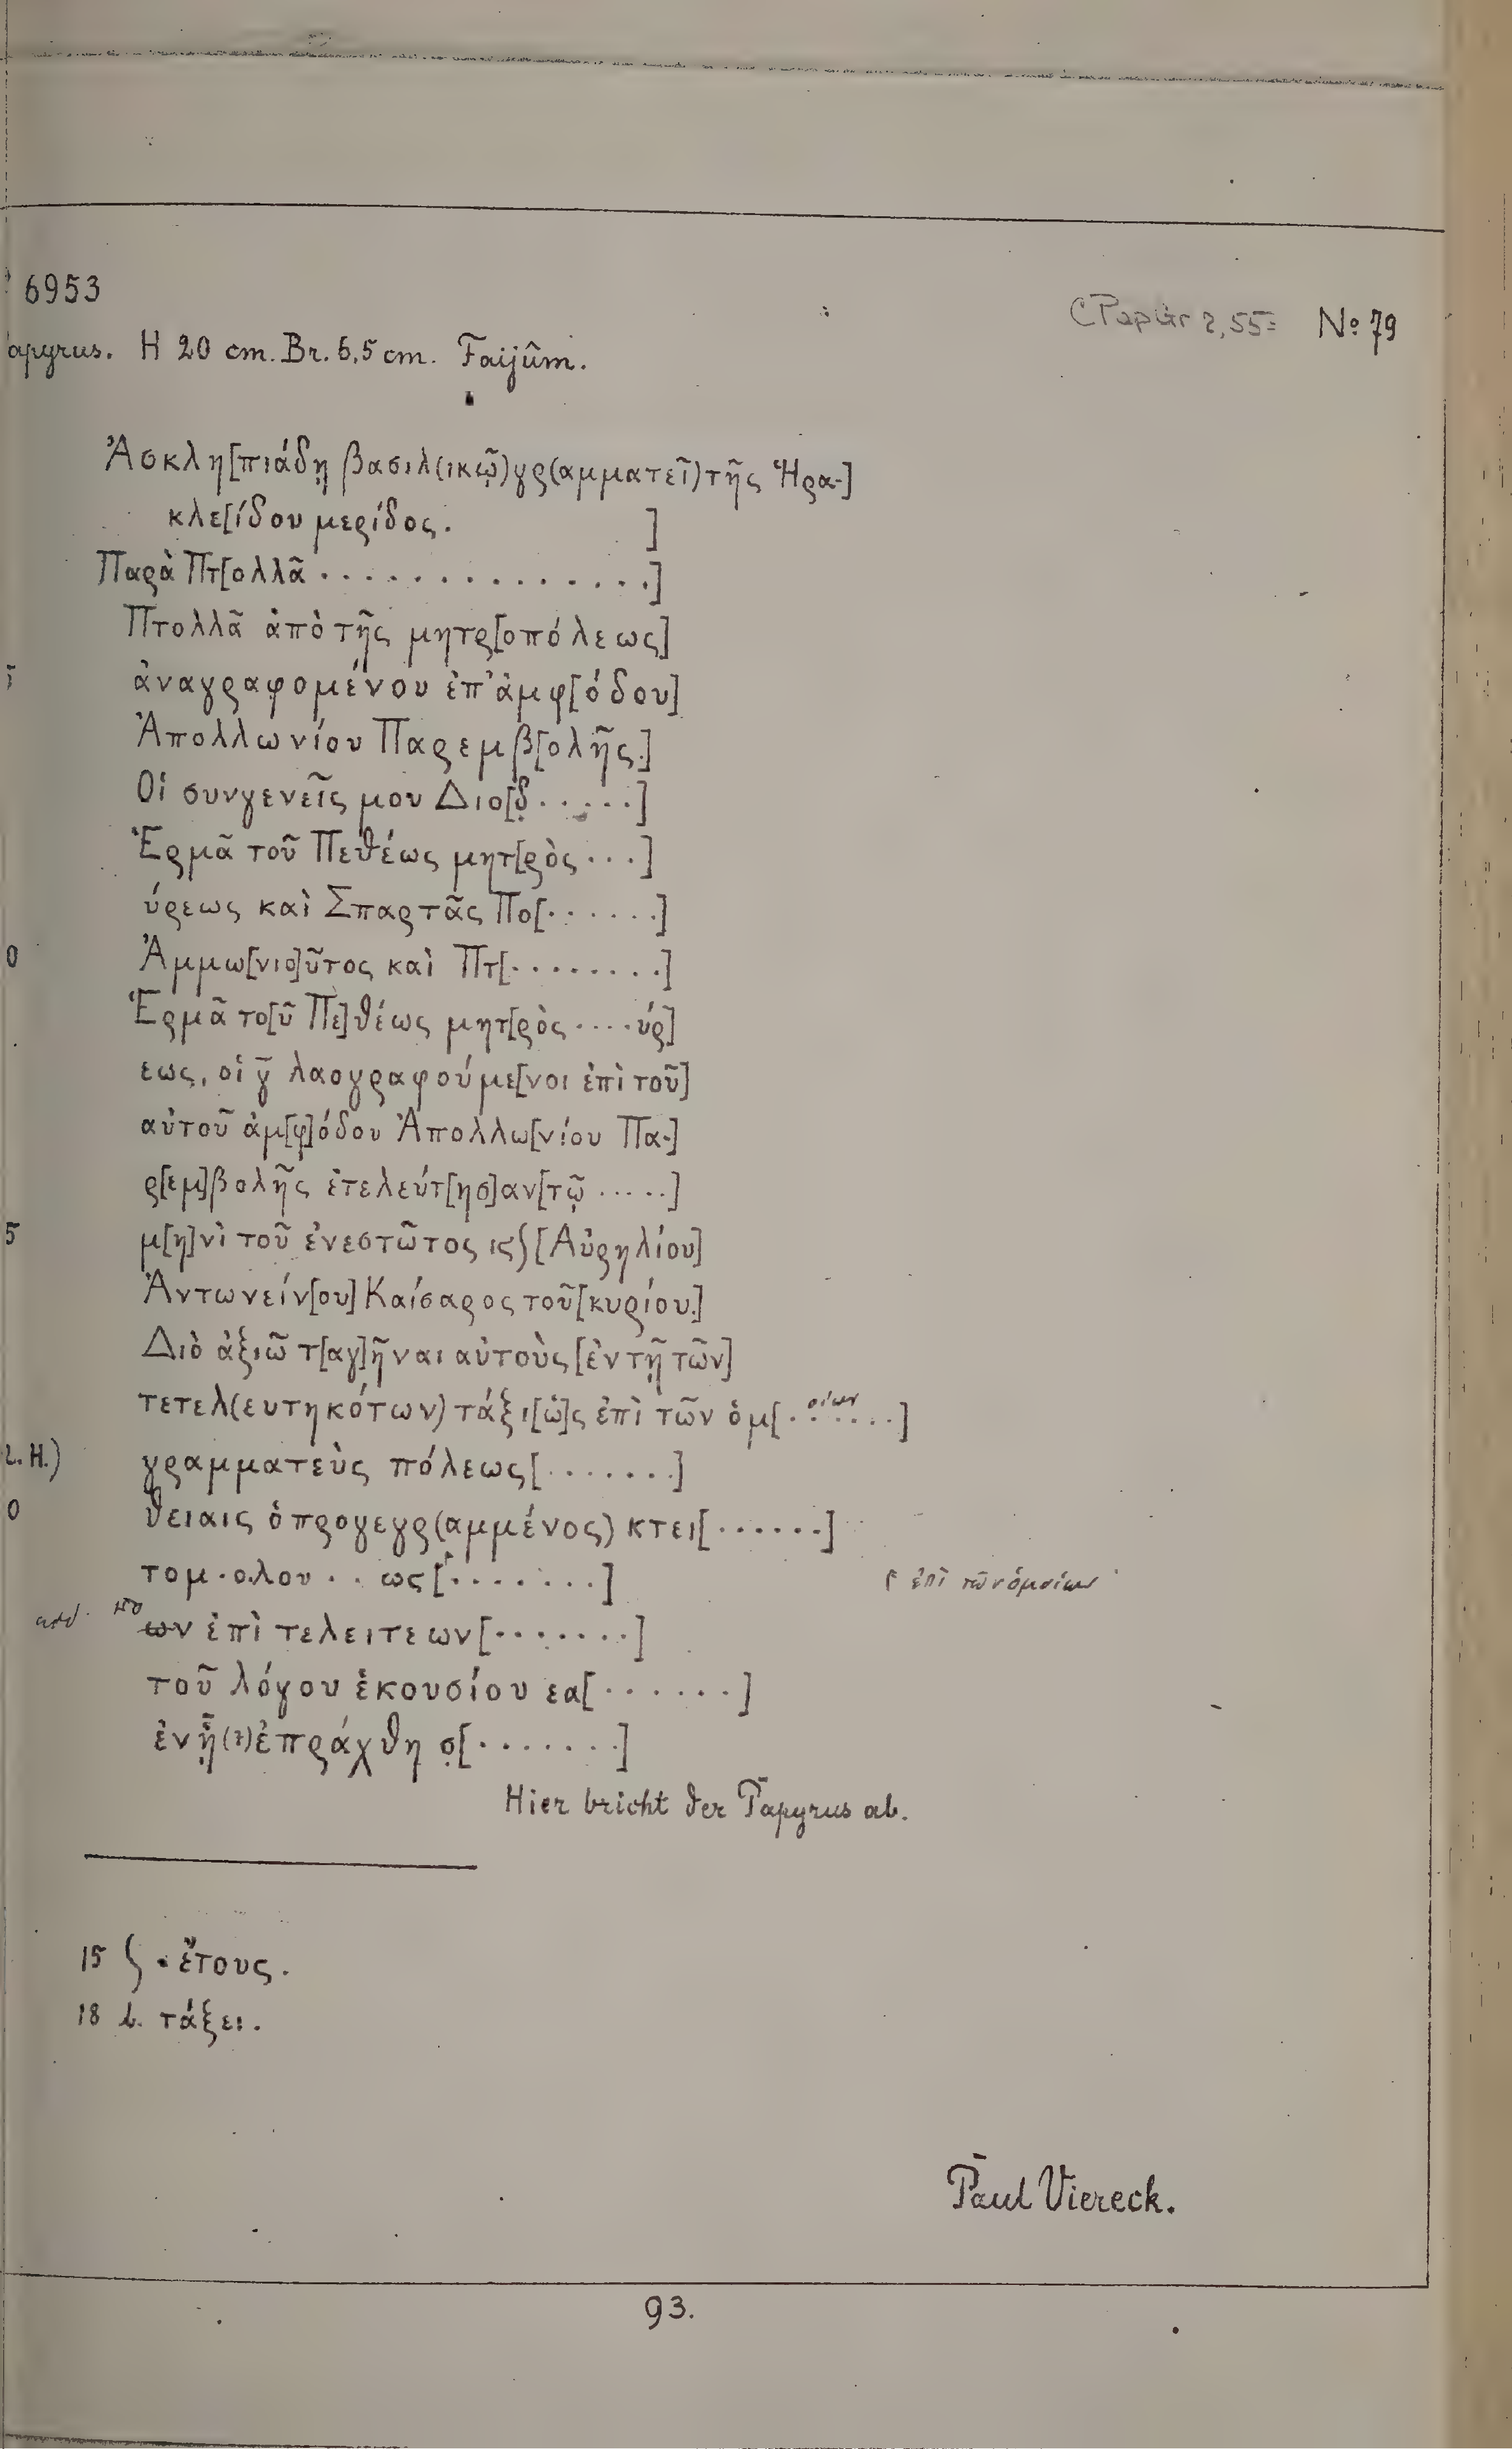 6953
CPapGr 2,55= No 79
apyrus. H 20 cm. Br. 6,5 cm. Faijûm.
Ἀσκλη[πιάδῃ βασιλ(ικῷ)γρ(αμματεῖ)τῆς Ἡρα-]
κλε[ίδου μερίδος. ]
Παρὰ Πτ[ολλᾶ . . . . . . . . . . . . . . .]
Πτολλᾶ ἀπὸ τῆς μητρ[οπόλεως]
ἀναγραφομένου ἐπ' ἀμφ[όδου]
Ἀπολλωνίου Παρεμβ[ολῆς.]
Οἱ συνγενεῖς μου Διο[δ̣ . . . . .]
Ἑρμᾶ τοῦ Πεθέως μητ[ρὸς . . .]
ύρεως καὶ Σπαρτᾶς Πο[. . . . . . .]
0 Ἀμμω[νιο]ῦτος καὶ Πτ[. . . . . . . . .]
Ἑρμᾶ το[ῦ Πε]θέως μητ[ρὸς . . . . ύρ]
εως, οἱ γ̅ λαογραφούμε[νοι ἐπὶ τοῦ]
αὐτοῦ ἀμ[φ]όδου Ἀπολλω[νίου Πα-]
ρ[εμ]βολῆς ἐτελεύτ[ησ]αν[τῷ . . . . .]
5 μ[η]νὶ τοῦ ἐνεστῶτος ις ʃ [Αὐρηλίου]
Ἀντωνείν[ου] Καίσαρος τοῦ [κυρίου.]
Διὸ ἀξιῶ τ[αγ]ῆναι αὐτοὺς [ἐν τῇ τῶν]
τετελ(ευτηκότων) τάξι[ὡ]ς ἐπὶ τῶν ὁμ[. οίων . . . .]
2. H.) γραμματεὺς πόλεως[. . . . . . .]
0 θειαις ὁ προγεγρ(αμμένος) κτει[. . . . . .]
τομ . ο.λου . . ως[. . . . . . . .] ἐπὶ τῶν ὁμοίων
add. ων ἐπὶ τελειτεων[. . . . . . .]
τοῦ λόγου ἑκουσίου εα[. . . . . . .]
ἐν ᾗ̣(?) ἐπράχθη σ̣[. . . . . . . .]
Hier bricht der Papyrus ab.
15 ʃ . ἔτους.
18 l. τάξει.
Paul Viereck.
93.